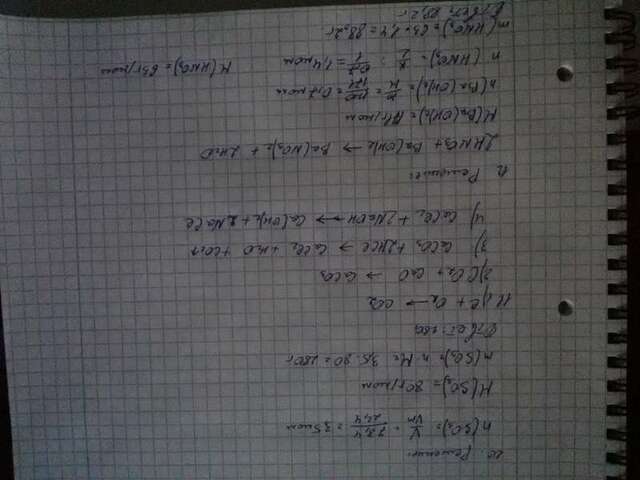 10. Решение:
n(SO3) = V/Vm = 78,4/22,4 = 3,5 моль
M(SO3) = 80 г/моль
m(SO3) = n · M = 3,5 · 80 = 280 г
Ответ: 280г
11. 1) C + O2 → CO2
2) CO2 + CaO → CaCO3
3) CaCO3 + 2HCl → CaCl2 + H2O + CO2↑
4) CaCl2 + 2NaOH → Ca(OH)2 + 2NaCl
Решение:
2HNO3 + Ba(OH)2 → Ba(NO3)2 + 2H2O
M(Ba(OH)2) = г/моль
n(Ba(OH)2) = m/M = = 0,7 моль
n(HNO3) = = 1,4 моль M(HNO3) = 63 г/моль
m(HNO3) = 63 · 1,4 = 88,2 г
Ответ: 88,2 г